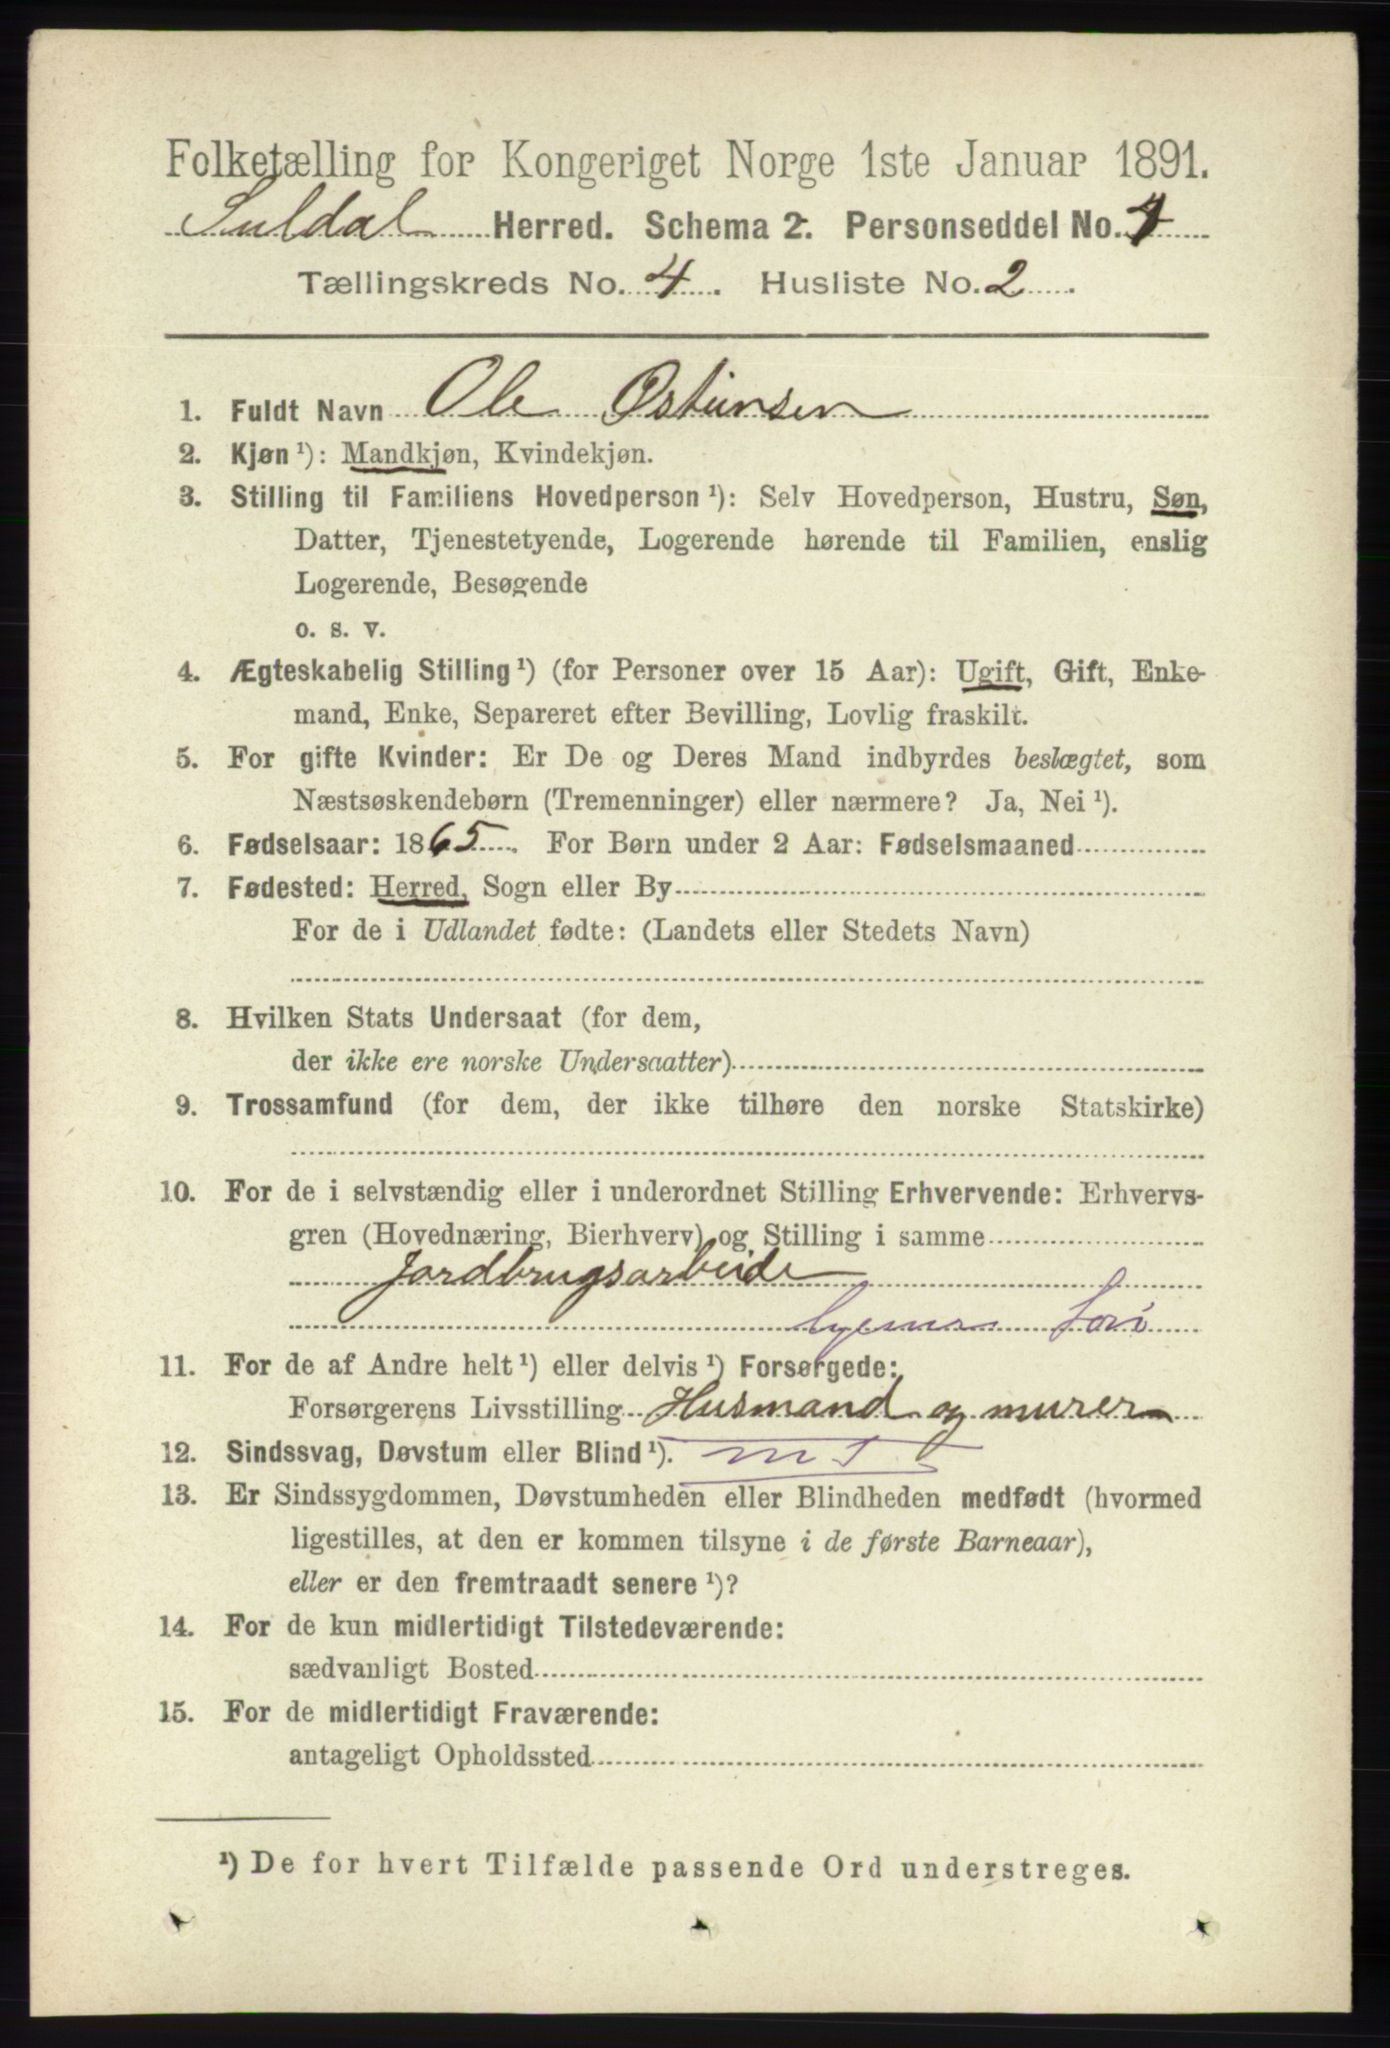 Folketælling for Kongeriget Norge 1ste Januar 1891.
Suldal Herred. Schema 2. Personseddel No.
Tællingskreds No. 4. Husliste No. 2.
1. Fuldt Navn Ole Osteinsen
2. Kjøn ¹): Mandkjøn, Kvindekjøn.
3. Stilling til Familiens Hovedperson ¹): Selv Hovedperson, Hustru, Søn,
Datter, Tjenestetyende, Logerende hørende til Familien, enslig
Logerende, Besøgende
o. s. v.
4. Ægteskabelig Stilling ¹) (for Personer over 15 Aar): Ugift, Gift, Enke-
mand, Enke, Separeret efter Bevilling, Lovlig fraskilt.
5. For gifte Kvinder: Er De og Deres Mand indbyrdes beslægtet, som
Næstsøskendebørn (Tremenninger) eller nærmere? Ja, Nei ¹).
6. Fødselsaar: 1865. For Børn under 2 Aar: Fødselsmaaned
7. Fødested: Herred, Sogn eller By
For de i Udlandet fødte: (Landets eller Stedets Navn)
8. Hvilken Stats Undersaat (for dem,
der ikke ere norske Undersaatter)
9. Trossamfund (for dem, der ikke tilhøre den norske Statskirke)
10. For de i selvstændig eller i underordnet Stilling Erhvervende: Erhvervs-
gren (Hovednæring, Bierhverv) og Stilling i samme
Jordbrugsarbeide
11. For de af Andre helt ¹) eller delvis ¹) Forsørgede:
Forsørgerens Livsstilling Husmand og murer
12. Sindssvag, Døvstum eller Blind ¹).
13. Er Sindssygdommen, Døvstumheden eller Blindheden medfødt (hvormed
ligestilles, at den er kommen tilsyne i de første Barneaar),
eller er den fremtraadt senere ¹)?
14. For de kun midlertidigt Tilstedeværende:
sædvanligt Bosted
15. For de midlertidigt Fraværende:
antageligt Opholdssted
¹) De for hvert Tilfælde passende Ord understreges.